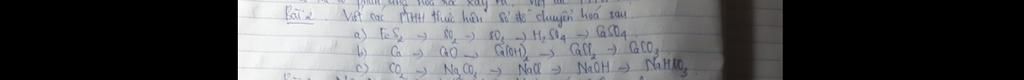 Bài 2. Viết các PTHH thực hiện sơ đồ chuyển hoá sau
a) FeS2 → SO2 → SO3 → H2SO4 → CaSO4
b) Ca → CaO → Ca(OH)2 → CaCl2 → CaCO3
c) CO2 → Na2CO3 → NaCl → NaOH → NaHCO3